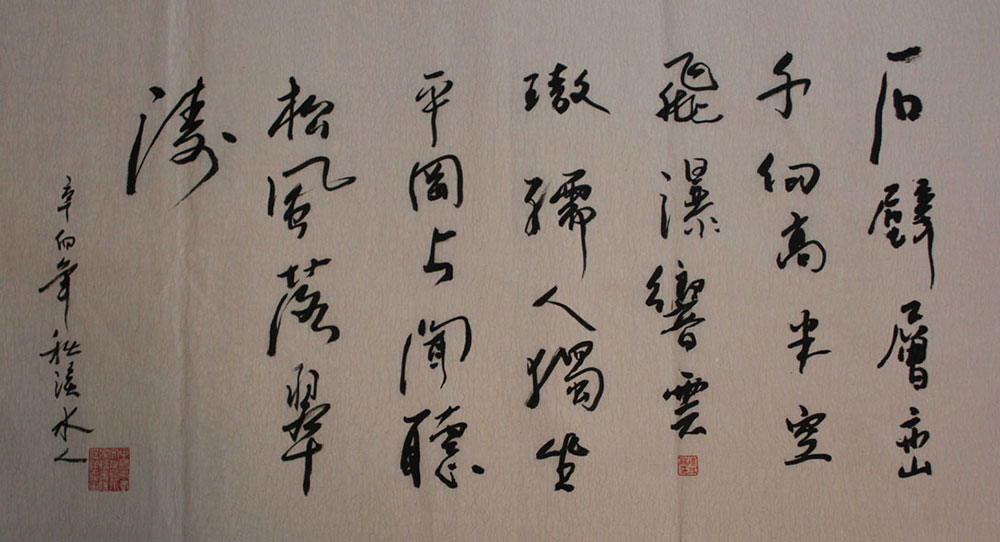 石壁層峦
千仞高半空
飛瀑響雲
璈孺人獨坐
平岡上閒聽
松風落翠
濤
辛卯年秋水人